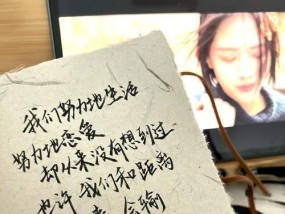 我们努力地生活
努力地恋爱
却从来没有想到过
也许我们和距离
会输